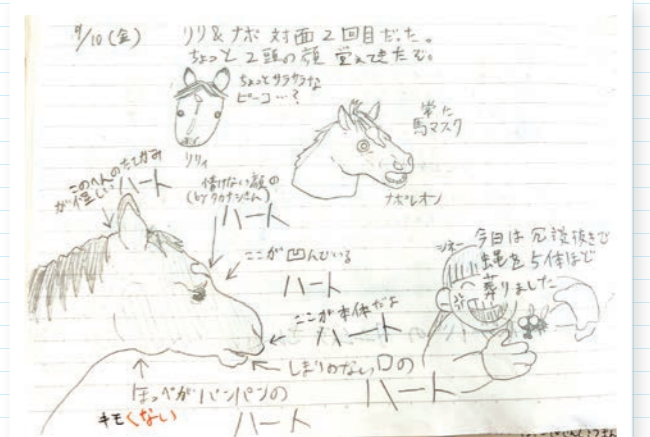 9/10(金) リリ&ナポ 対面2回目だった。
ちょっと2頭の顔 覚えてきたぞ。
ちょっとサラサラな
ピーコ…?
リリィ
常に
馬マスク
ナポレオン
このへんのたてがみ
が怪しいハート
情けない顔の
(byタカナシさん)
ハート
ここが凹んでいる
ハート
ここが本体だよ
ハート
しまりのない口の
ハート
ほっぺがパンパンの
ハート
キモくない
シネー
今日は冗談抜きで
蝿を5体ほど
葬りました